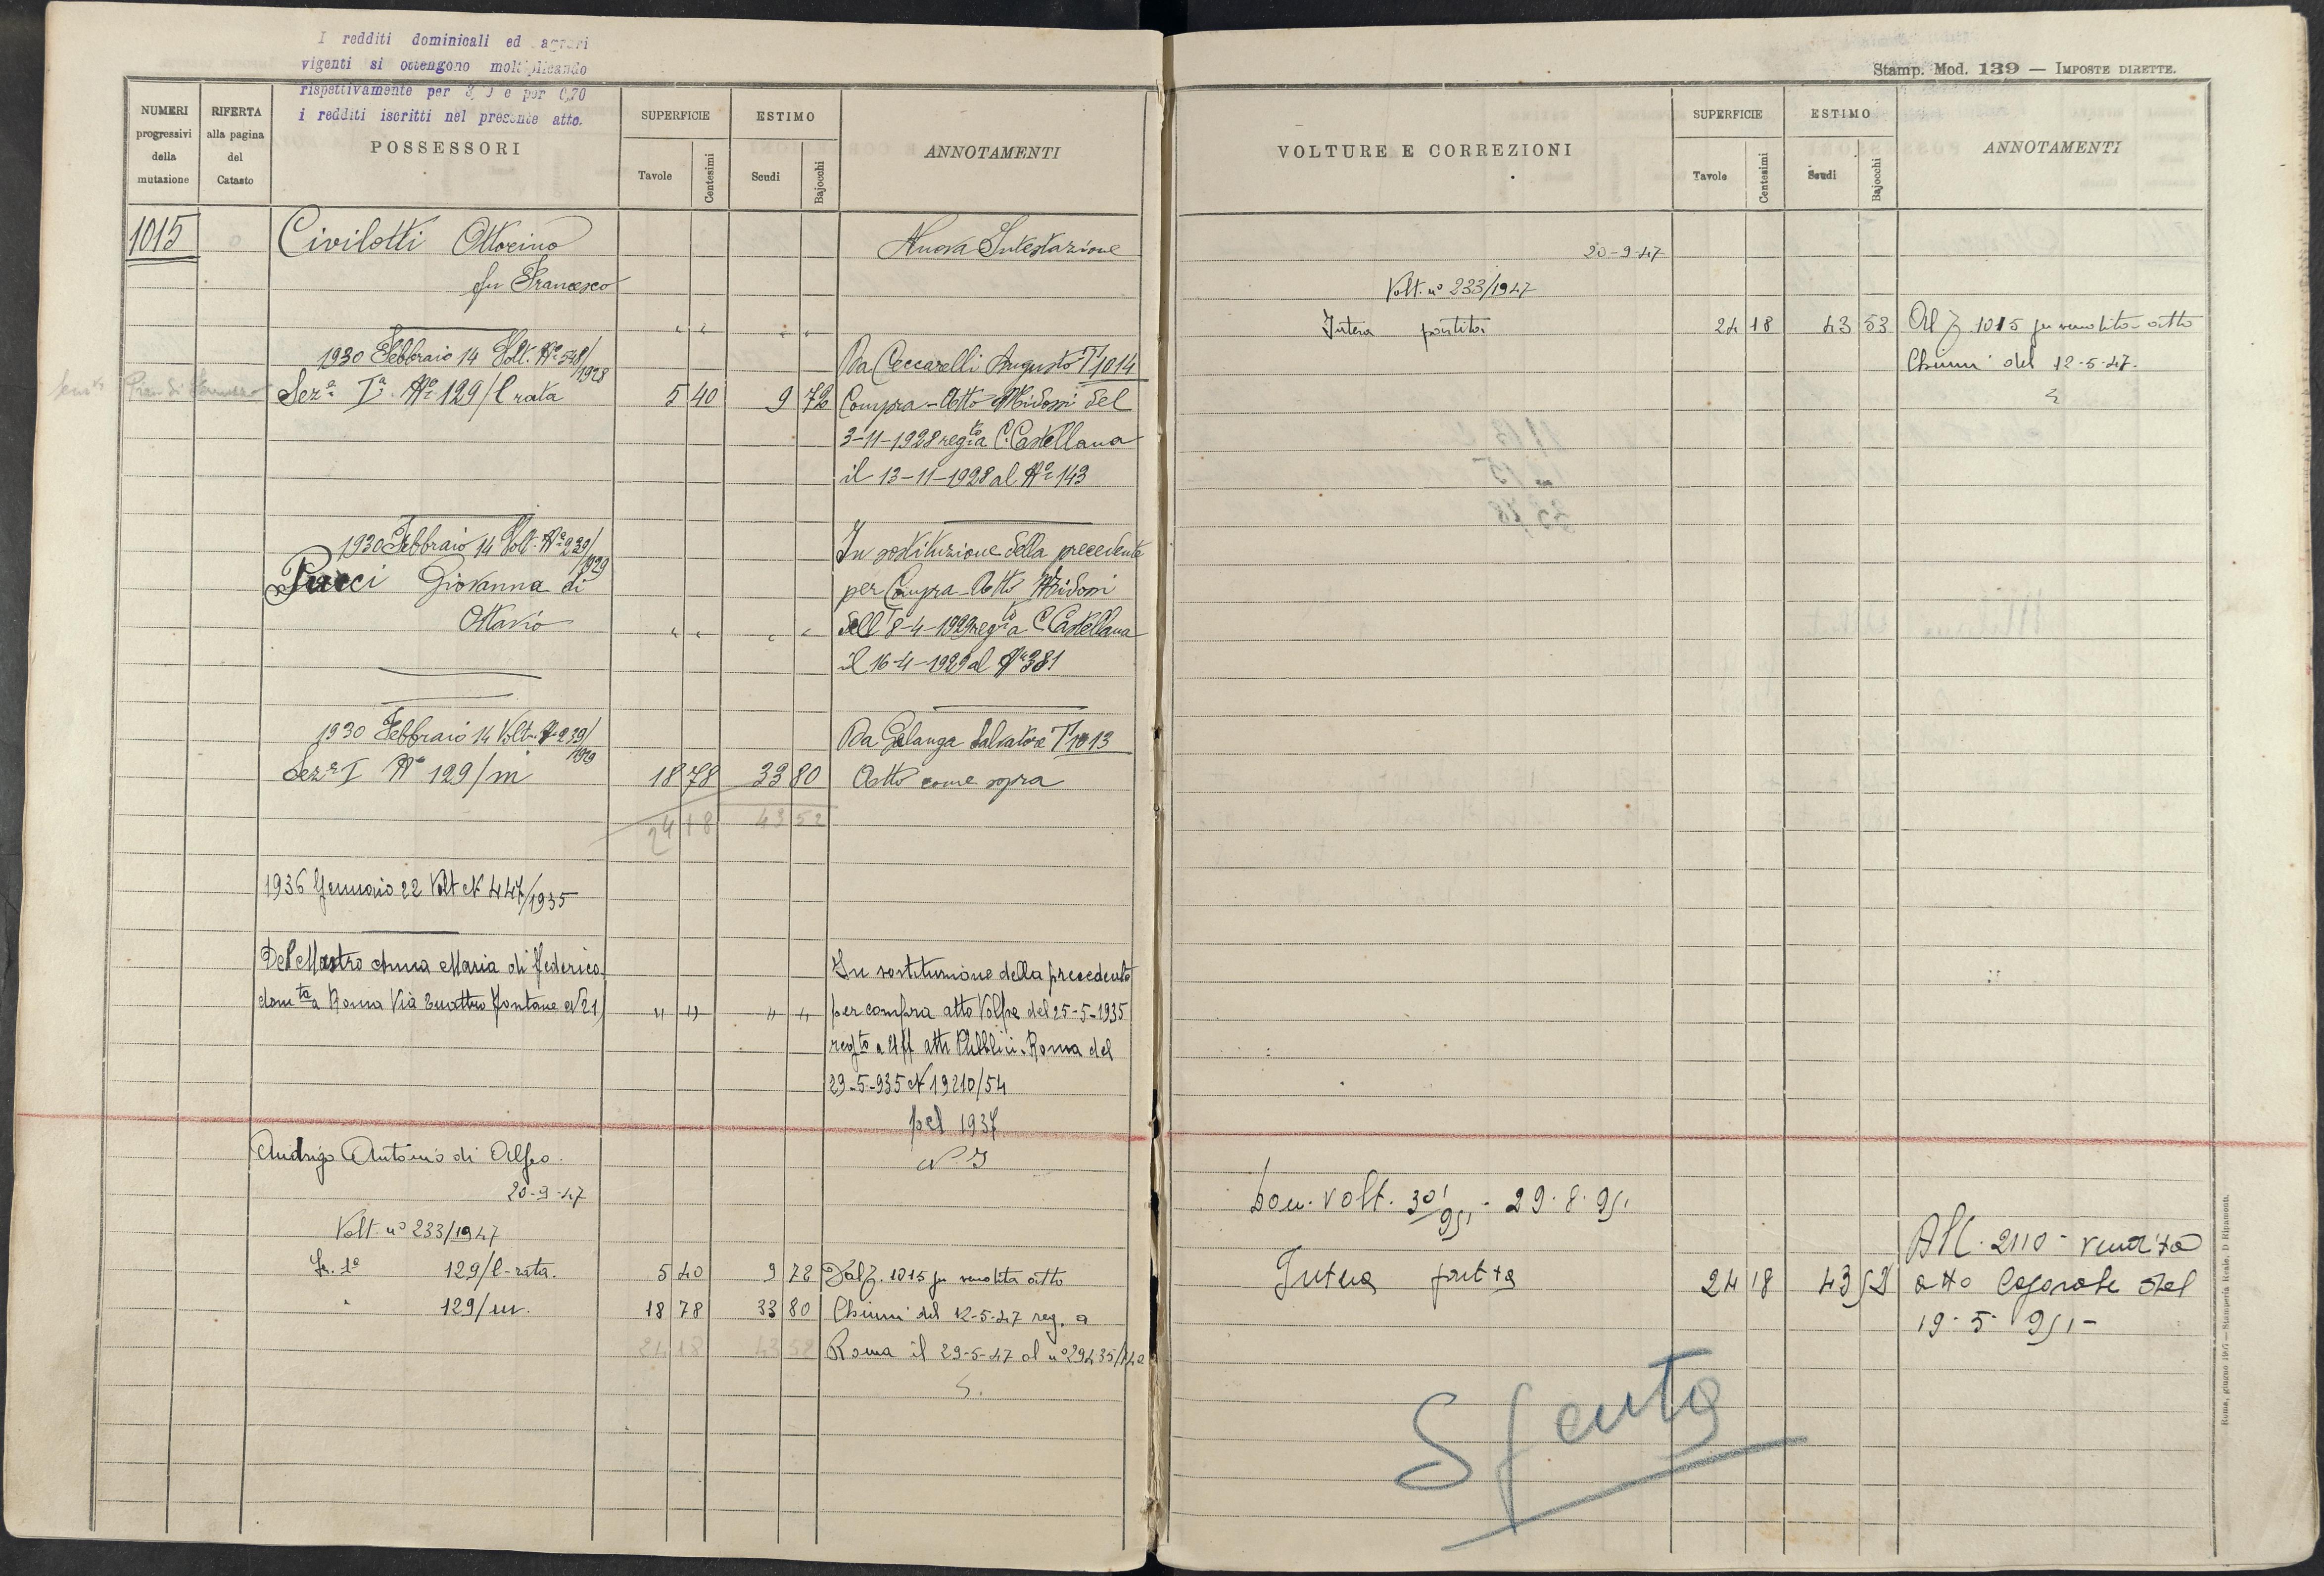 I redditi dominicali ed agrari
vigenti si ottengono moltiplicando
rispettivamente per e per 0,70
i redditi iscritti nel presente atto.
NUMERI progressivi della mutazione
RIFERTA alla pagina del Catasto
POSSESSORI
SUPERFICIE
Tavole
Centesimi
ESTIMO
Scudi
Bajocchi
ANNOTAMENTI
1015
Civilotti Ottorino
fu Francesco
Nuova Intestazione
1930 Febbraio 14 Volt. Nº 548/1928
Sez.ª Iª Nº 129/l rata 5 40 9 72
Da Ceccarelli Augusto T 1014
Compra - Atto Midossi del
3-11-1928 reg.to a C. Castellana
il 13-11-1928 al Nº 143
1930 Febbraio 14 Volt. Nº 239/1929
Pucci Giovanna di
Ottavio " " " "
In sostituzione della precedente
per Compra - Atto Midossi
dell' 8-4-1929 reg.to a C. Castellana
il 16-4-1929 al Nº 381
1930 Febbraio 14 Volt. Nº 239/1929
Sez.ª I Nº 129/m 18 78 33 80
24 18 43 52
Da Galanga Salvatore T 1013
Atto come sopra
1936 Gennaio 22 Volt N 447/1935
Del Mastro Anna Maria di Federico
dom.ta a Roma Via Quattro Fontane N 21 " " " "
In sostituzione della precedente
per compra atto Volpe del 25-5-1935
reg.to a Uff atti Pubblici Roma del
29-5-935 N 19210/54
pel 1937
Andrigo Antonio di Alfeo.
20-9-47
Volt. nº 233/1947
129/l-rata. 5 40 9 72
129/m. 18 78 33 80
24 18 43 52
Dal z. 1015 per vendita atto
Chiumi del 12-5-47 reg. a
Roma il 29-5-47 al nº 29435
Stamp. Mod. 139 — IMPOSTE DIRETTE.
VOLTURE E CORREZIONI
SUPERFICIE
Tavole
Centesimi
ESTIMO
Scudi
Bajocchi
ANNOTAMENTI
20-9-47
Volt. nº 233/1947
Intera partita 24 18 43 53
Al z 1015 per vendita atto
Chiumi del 12-5-47.
volt. 301/951 - 29.8.951
Intera partita 24 18 43 52
2110 - vendita
atto del
19-5-951-
Spenta
Roma, giugno 1907 — Stamperia Reale, D. Ripamonti.